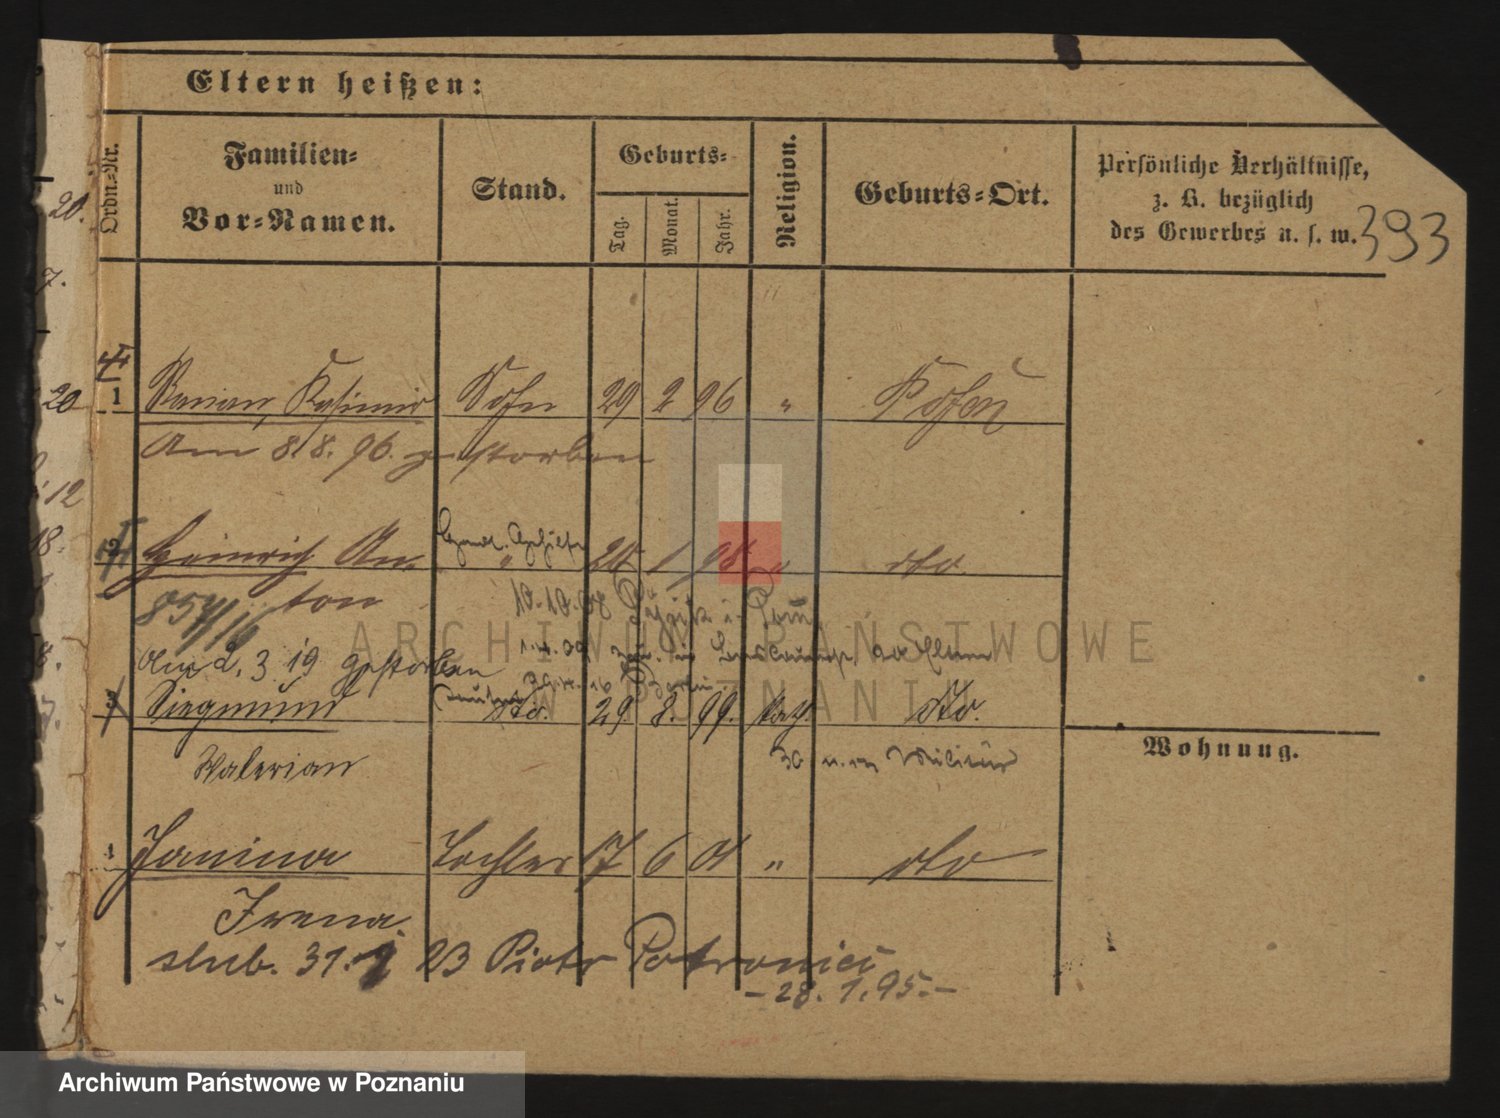 Eltern heißen:
Ordn.-Nr.
Familien-
und
Vor-Namen.
Stand.
Geburts-
Tag.
Monat.
Jahr.
Religion.
Geburts-Ort.
Persönliche Verhältnisse,
z. B. bezüglich
des Gewerbes u. s. w.
393
20.
7.
20
12
18.
8.
1 Marian, Kasimir Sohn 29 2 96 " Posen
Am 8.8. 96. gestorben
2 Heinrich An- " 1 98 " dto
ton
10.10.
857/16
Am 2. 3 19 gestorben
3 Siegmund dto. 29. 8. 99. kath. dto.
Walerian
30 Militär
Wohnung.
4 Janina Tochter 17 6 01 " dto
Irena.
slub. 31. 23 Piotr
- 28. 1. 95. -
ARCHIWUM PAŃSTWOWE
W POZNANIU
Archiwum Państwowe w Poznaniu